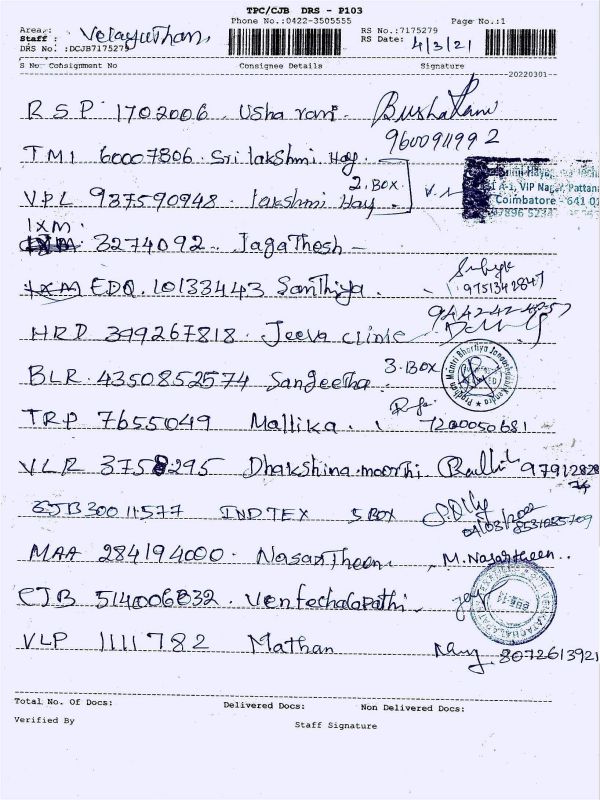 TPC/CJB DRS - P103
Phone No.:0422-3505555 Page No.:1
Area: RS No.:7175279
Staff : Velayuthan RS Date: 4/3/21
DRS No. :DCJB7175279
S No Consignment No Consignee Details Signature
20220301
RSP 1702006 Usha rani
9600911992
TMI 60007806 Sri lakshmi Hay.
2.BOX
VPL 937590948 lakshmi Hay
A-1, VIP Nagar, Pattana
Coimbatore - 641 01
IXM
3274092 Jagathesh
EDQ 10133443 Santhiya
9751342847
HRD 399267818 Jeeva clinic
BLR 4350852574 Sangeetha 3.BOX
Pradhan Mantri Bhartiya Janaushadhi Kendra
TRP 7655049 Mallika 7200050681
VLR 3758295 Dhakshina moorthi
CJB30011577 INDTEX 5 BOX
MAA 284194000 Nasartheen M.Nasartheen
CJB 514006832 Ventechalapathi
VLP 1111782 Mathan 8072613921
Total No. Of Docs: Delivered Docs: Non Delivered Docs:
Verified By Staff Signature